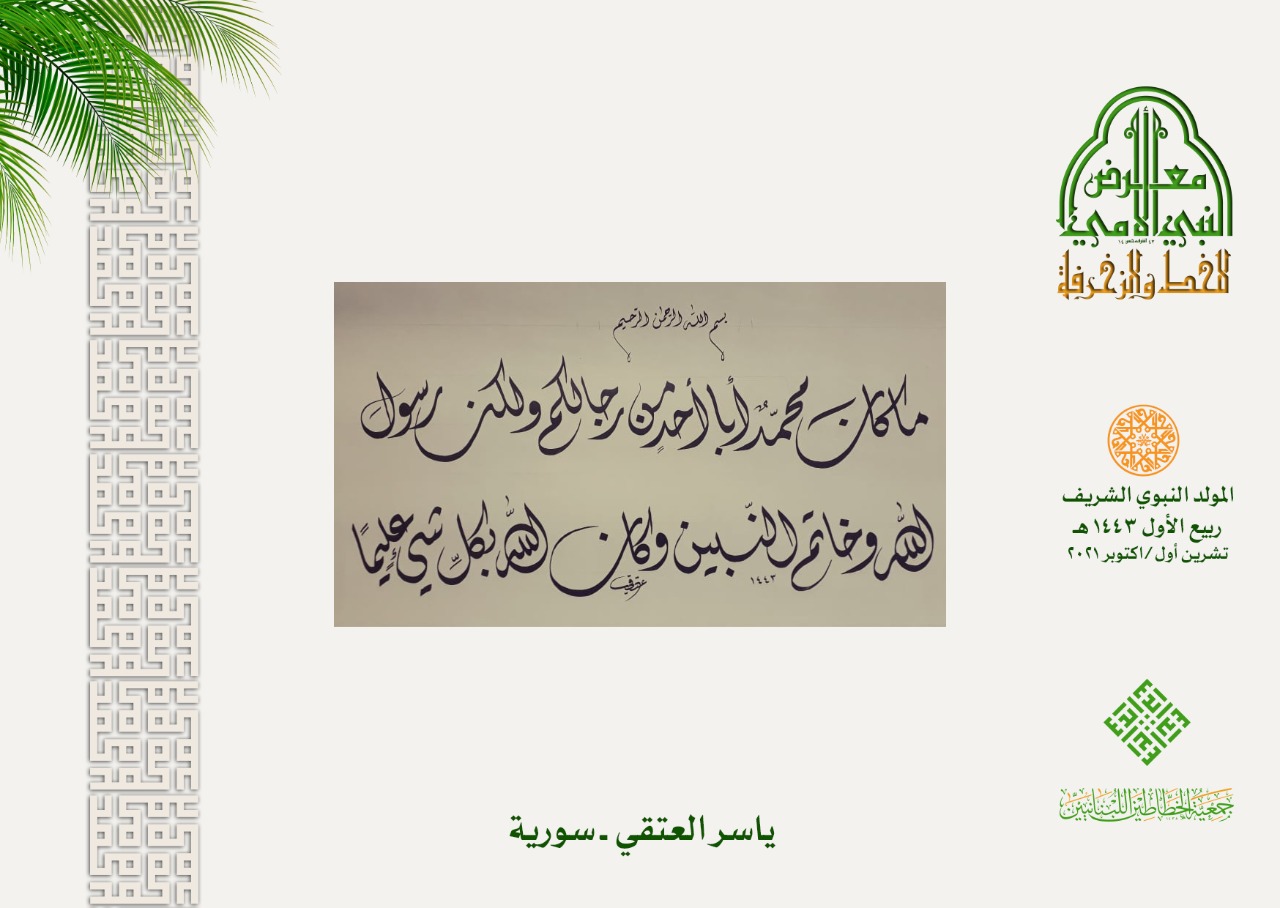 معرض
النبي الأمي
للخط والزخرفة
بسم الله الرحمن الرحيم
ما كان محمدٌ أبا أحدٍ من رجالكم ولكن رسول
الله وخاتم النّبين وكان الله بكلِّ شيءٍ عليمًا
١٤٤٣
المولد النبوي الشريف
ربيع الأول ١٤٤٣ هـ
تشرين أول/اكتوبر ٢٠٢١
جمعية الخطاطين اللبنانيين
ياسر العتقي - سورية